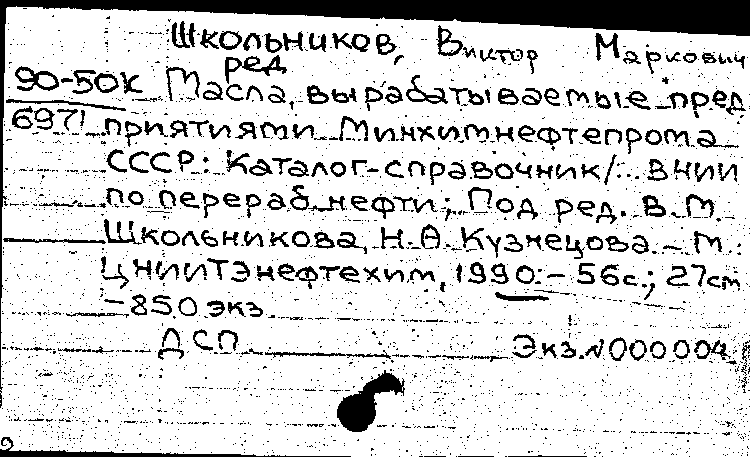 Школьников, Виктор Маркович
ред
90-50к Масла, вырабатываемые пред
6971 приятиями Минхимнефтепрома
СССР: Каталог-справочник/... ВНИИ
по перераб. нефти; Под ред. В.М.
Школьникова, Н.А. Кузнецова. – М.:
ЦНИИТЭнефтехим, 1990. – 56с.; 27см
– 850 экз.
ДСП Экз. N000004